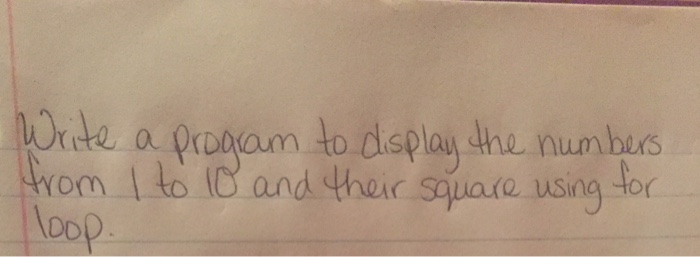 Write a program to display the numbers
from 1 to 10 and their square using for
loop.